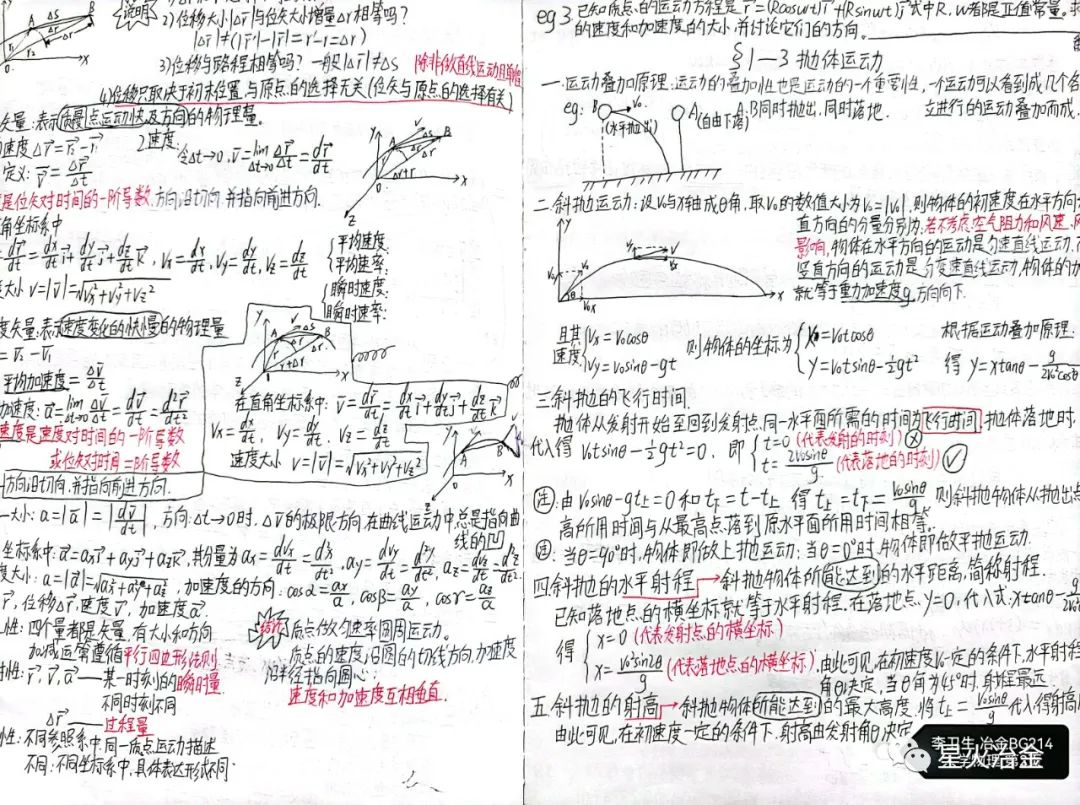 2)位移大小|Δr⃗|与位矢大小增量Δr相等吗?
|Δr⃗|≠(|r⃗'|-|r⃗|=r'-r=Δr)
3)位移与路程相等吗? 一般|Δr⃗|≠ΔS
4)位移只取决于初末位置,与原点的选择无关(位矢与原点的选择有关)
矢量:表示质点运动快慢及方向的物理量。
速度Δr⃗=r⃗₂-r⃗₁
2速度:
令Δt→0, v⃗=lim Δt→0 Δr⃗/Δt=dr⃗/dt
定义: v̄=Δr⃗/Δt
是位矢对时间的一阶导数,方向:沿切向,并指向前进方向.
角坐标系中
=dr⃗/dt=dx/dt i⃗+dy/dt j⃗+dz/dt k⃗, Vx=dx/dt, Vy=dy/dt, Vz=dz/dt
大小 v=|v⃗|=√(Vx²+Vy²+Vz²)
平均速度:
平均速率:
瞬时速度:
瞬时速率:
度矢量:表示速度变化的快慢的物理量
=v⃗₂-v⃗₁
平均加速度=Δv⃗/Δt
加速度: a⃗=lim Δt→0 Δv⃗/Δt=dv⃗/dt=d²r⃗/dt²
速度是速度对时间的一阶导数
或位矢对时间二阶导数
方向:沿切向,并指向前进方向.
在直角坐标系中: v⃗=dr⃗/dt=dx/dt i⃗+dy/dt j⃗+dz/dt k⃗
Vx=dx/dt, Vy=dy/dt, Vz=dz/dt
速度大小 v=|v⃗|=√(Vx²+Vy²+Vz²)
大小: a=|a⃗|=|dv⃗/dt|, 方向:Δt→0时,Δv⃗的极限方向,在曲线运动中总是指向曲
线的凹
坐标系中: a⃗=ax i⃗+ay j⃗+az k⃗, 其分量为ax=dvx/dt=d²x/dt², ay=dvy/dt=d²y/dt², az=dvz/dt=d²z/dt²
度大小: a=|a⃗|=√(ax²+ay²+az²), 加速度的方向: cosα=ax/a, cosβ=ay/a, cosγ=az/a
r⃗,位移Δr⃗,速度v⃗,加速度a⃗.
性:四个量都是矢量,有大小和方向
加减运算遵循平行四边形法则
性: r⃗, v⃗, a⃗—某一时刻的瞬时量
不同时刻不同
Δr⃗—过程量
性:不同参照系中同一质点运动描述
不同:不同坐标系中,具体表达形式不同
结论
质点做匀速率圆周运动。
质点的速度沿圆的切线方向,加速度
沿半径指向圆心;
速度和加速度互相垂直.
eg3 已知质点的运动方程是r⃗=(Rcosωt)i⃗+(Rsinωt)j⃗式中R,ω都是正值常量.求
的速度和加速度的大小,并讨论它们的方向。
§1—3 抛体运动
一.运动叠加原理:运动的叠加性也是运动的一个重要性,一个运动可以看到成几个各
立进行的运动叠加而成.
eg: B V₀ (水平抛出) A (自由下落) A.B同时抛出,同时落地.
二.斜抛运动:设V₀与X轴成θ角,取V₀的数值大小为V₀=|V₀|,则物体的初速度在水平方向
直方向的分量分别为:若不考虑空气阻力和风速,风
影响,物体在水平方向的运动是匀速直线运动,而
竖直方向的运动是匀变速直线运动,物体的加
就等于重力加速度g,方向向下.
且其速度 {Vx=V₀cosθ
Vy=V₀sinθ-gt
则物体的坐标为 {X=V₀tcosθ
Y=V₀tsinθ-½gt²
根据运动叠加原理:
得 Y=xtanθ-
三斜抛的飞行时间.
抛体从发射开始至回到发射点同一水平面所需的时间为飞行时间.抛体落地时,
代入得 V₀tsinθ-½gt²=0. 即 {t=0(代表发射的时刻)
t=2V₀sinθ/g(代表落地的时刻)
注:由V₀sinθ-gt上=0和t下=t-t上 得t上=t下=V₀sinθ/g 则斜抛物体从抛出点
高所用时间与从最高点落到原水平面所用时间相等.
注:当θ=90°时,物体即做上抛运动;当θ=0°时,物体即做平抛运动.
四斜抛的水平射程→斜抛物体所能达到的水平距离,简称射程.
已知落地点的横坐标就等于水平射程.在落地点,y=0,代入式:xtanθ-
得 {x=0(代表发射点的横坐标)
x=V₀²sin2θ/g(代表落地点的横坐标)
由此可见,在初速度V₀一定的条件下,水平射程
角θ决定,当θ角为45°时,射程最远.
五.斜抛的射高→斜抛物体所能达到的最大高度.将t上=V₀sinθ/g代入得射高
由此可见,在初速度一定的条件下,射高由发射角θ决定
李卫生 冶金BG214
星火冶金